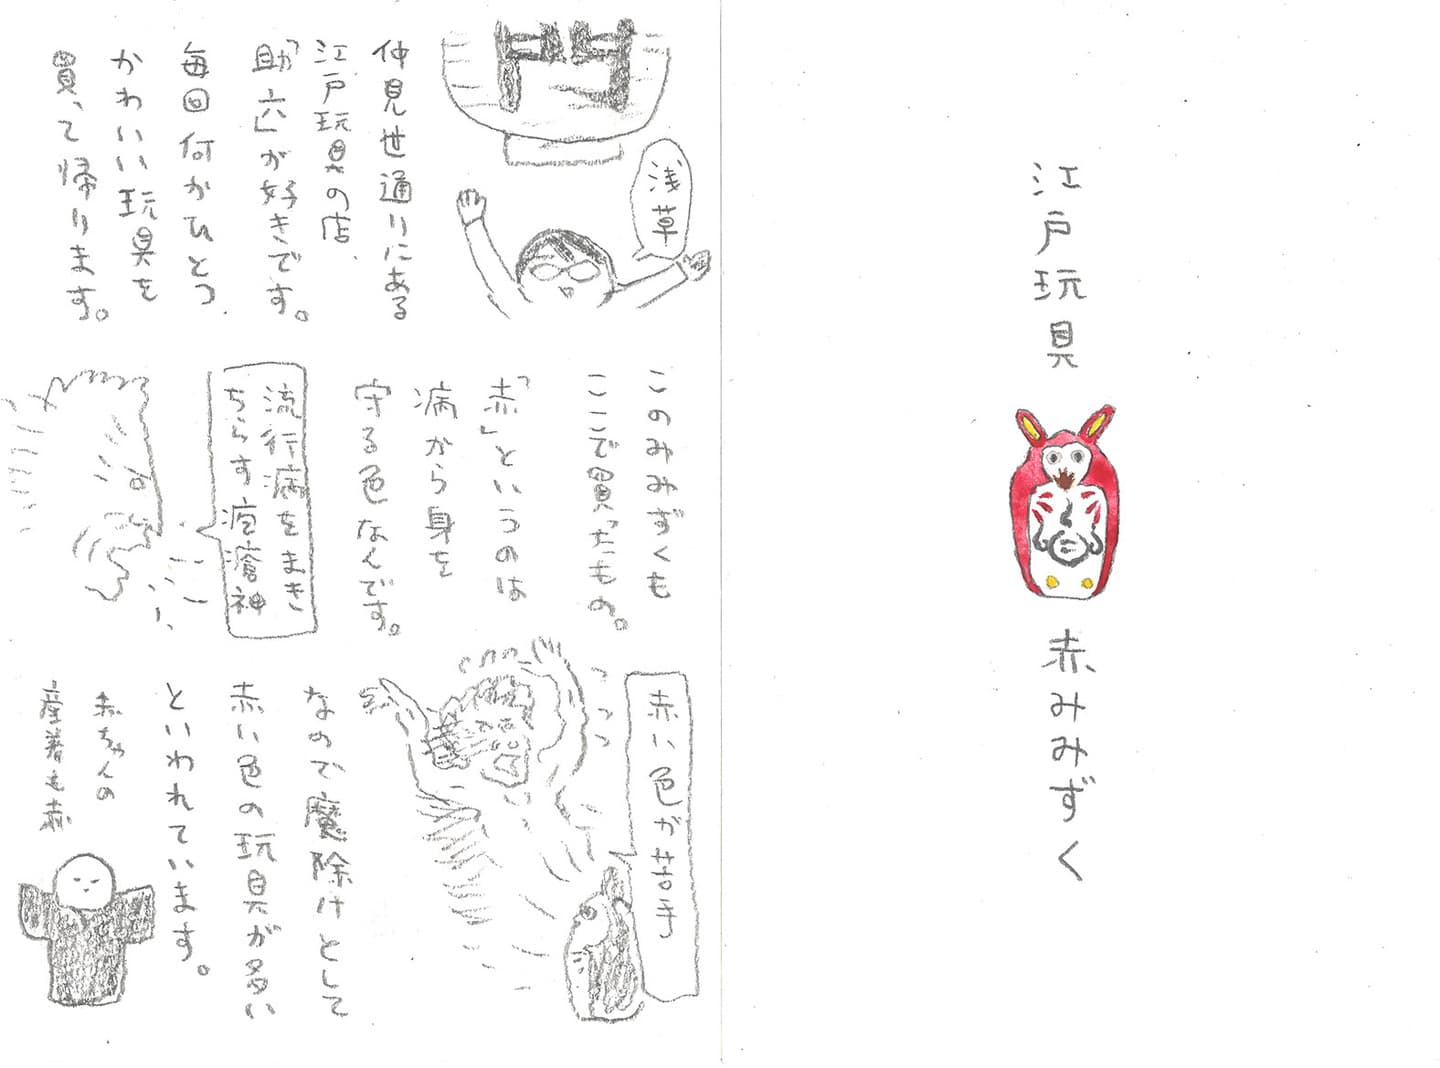 江戸玩具
赤みみずく
浅草
仲見世通りにある
江戸玩具の店、
「助六」が好きです。
毎回何かひとつ、
かわいい玩具を
買って帰ります。
このみみずくも
ここで買ったもの。
「赤」というのは
病から身を
守る色なんです。
流行病をまき
ちらす疱瘡神
赤い色が苦手
なので魔除けとして
赤い色の玩具が多い
といわれています。
赤ちゃんの
産着も赤